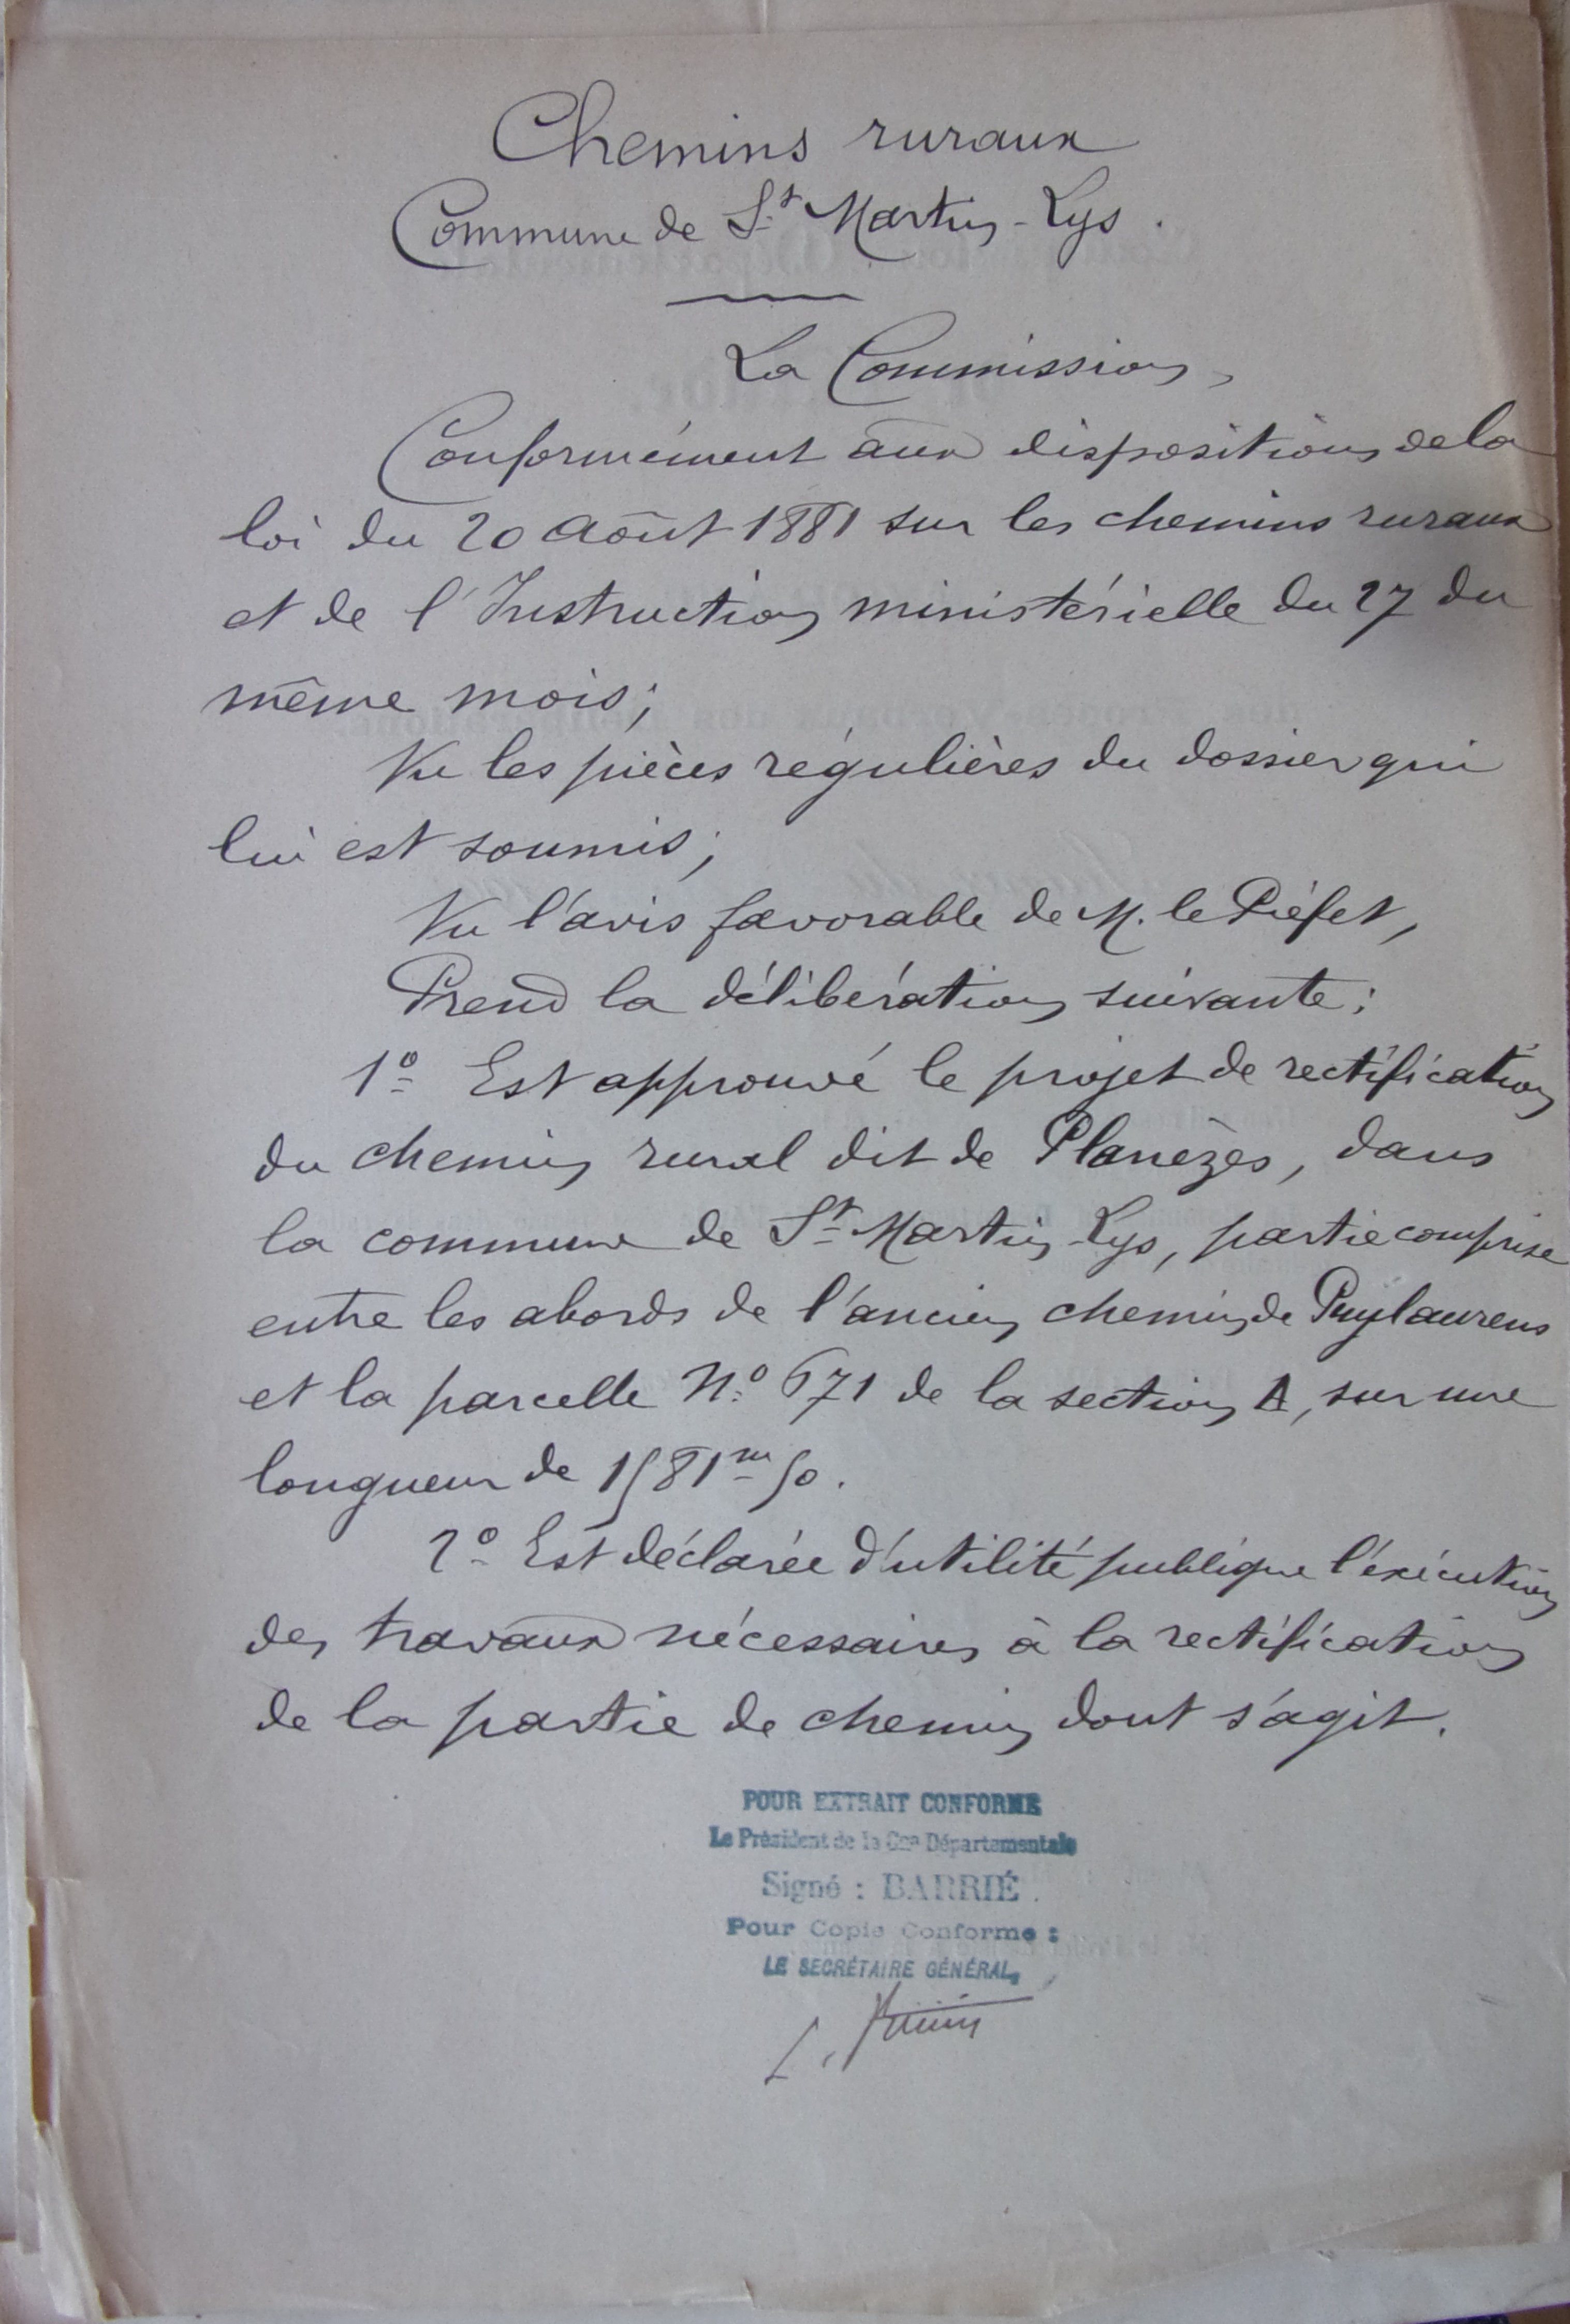 Chemins ruraux
Commune de St Martin-Lys.
La Commission,
Conformément aux dispositions de la
loi du 20 Août 1881 sur les chemins ruraux
et de l'Instruction ministérielle du 27 du
même mois;
Vu les pièces régulières du dossier qui
lui est soumis;
Vu l'avis favorable de M. le Préfet,
Prend la délibération suivante:
1º Est approuvé le projet de rectification
du chemin rural dit de Planèzes, dans
la commune de St Martin-Lys, partie comprise
entre les abords de l'ancien chemin de Puylaurens
et la parcelle Nº 671 de la section A, sur une
longueur de 1581m50.
2º Est déclarée d'utilité publique l'exécution
des travaux nécessaires à la rectification
de la partie de chemin dont s'agit.
POUR EXTRAIT CONFORME
Le Président de la Con Départementale
Signé : BARRIÉ.
Pour Copie Conforme :
LE SECRÉTAIRE GÉNÉRAL,